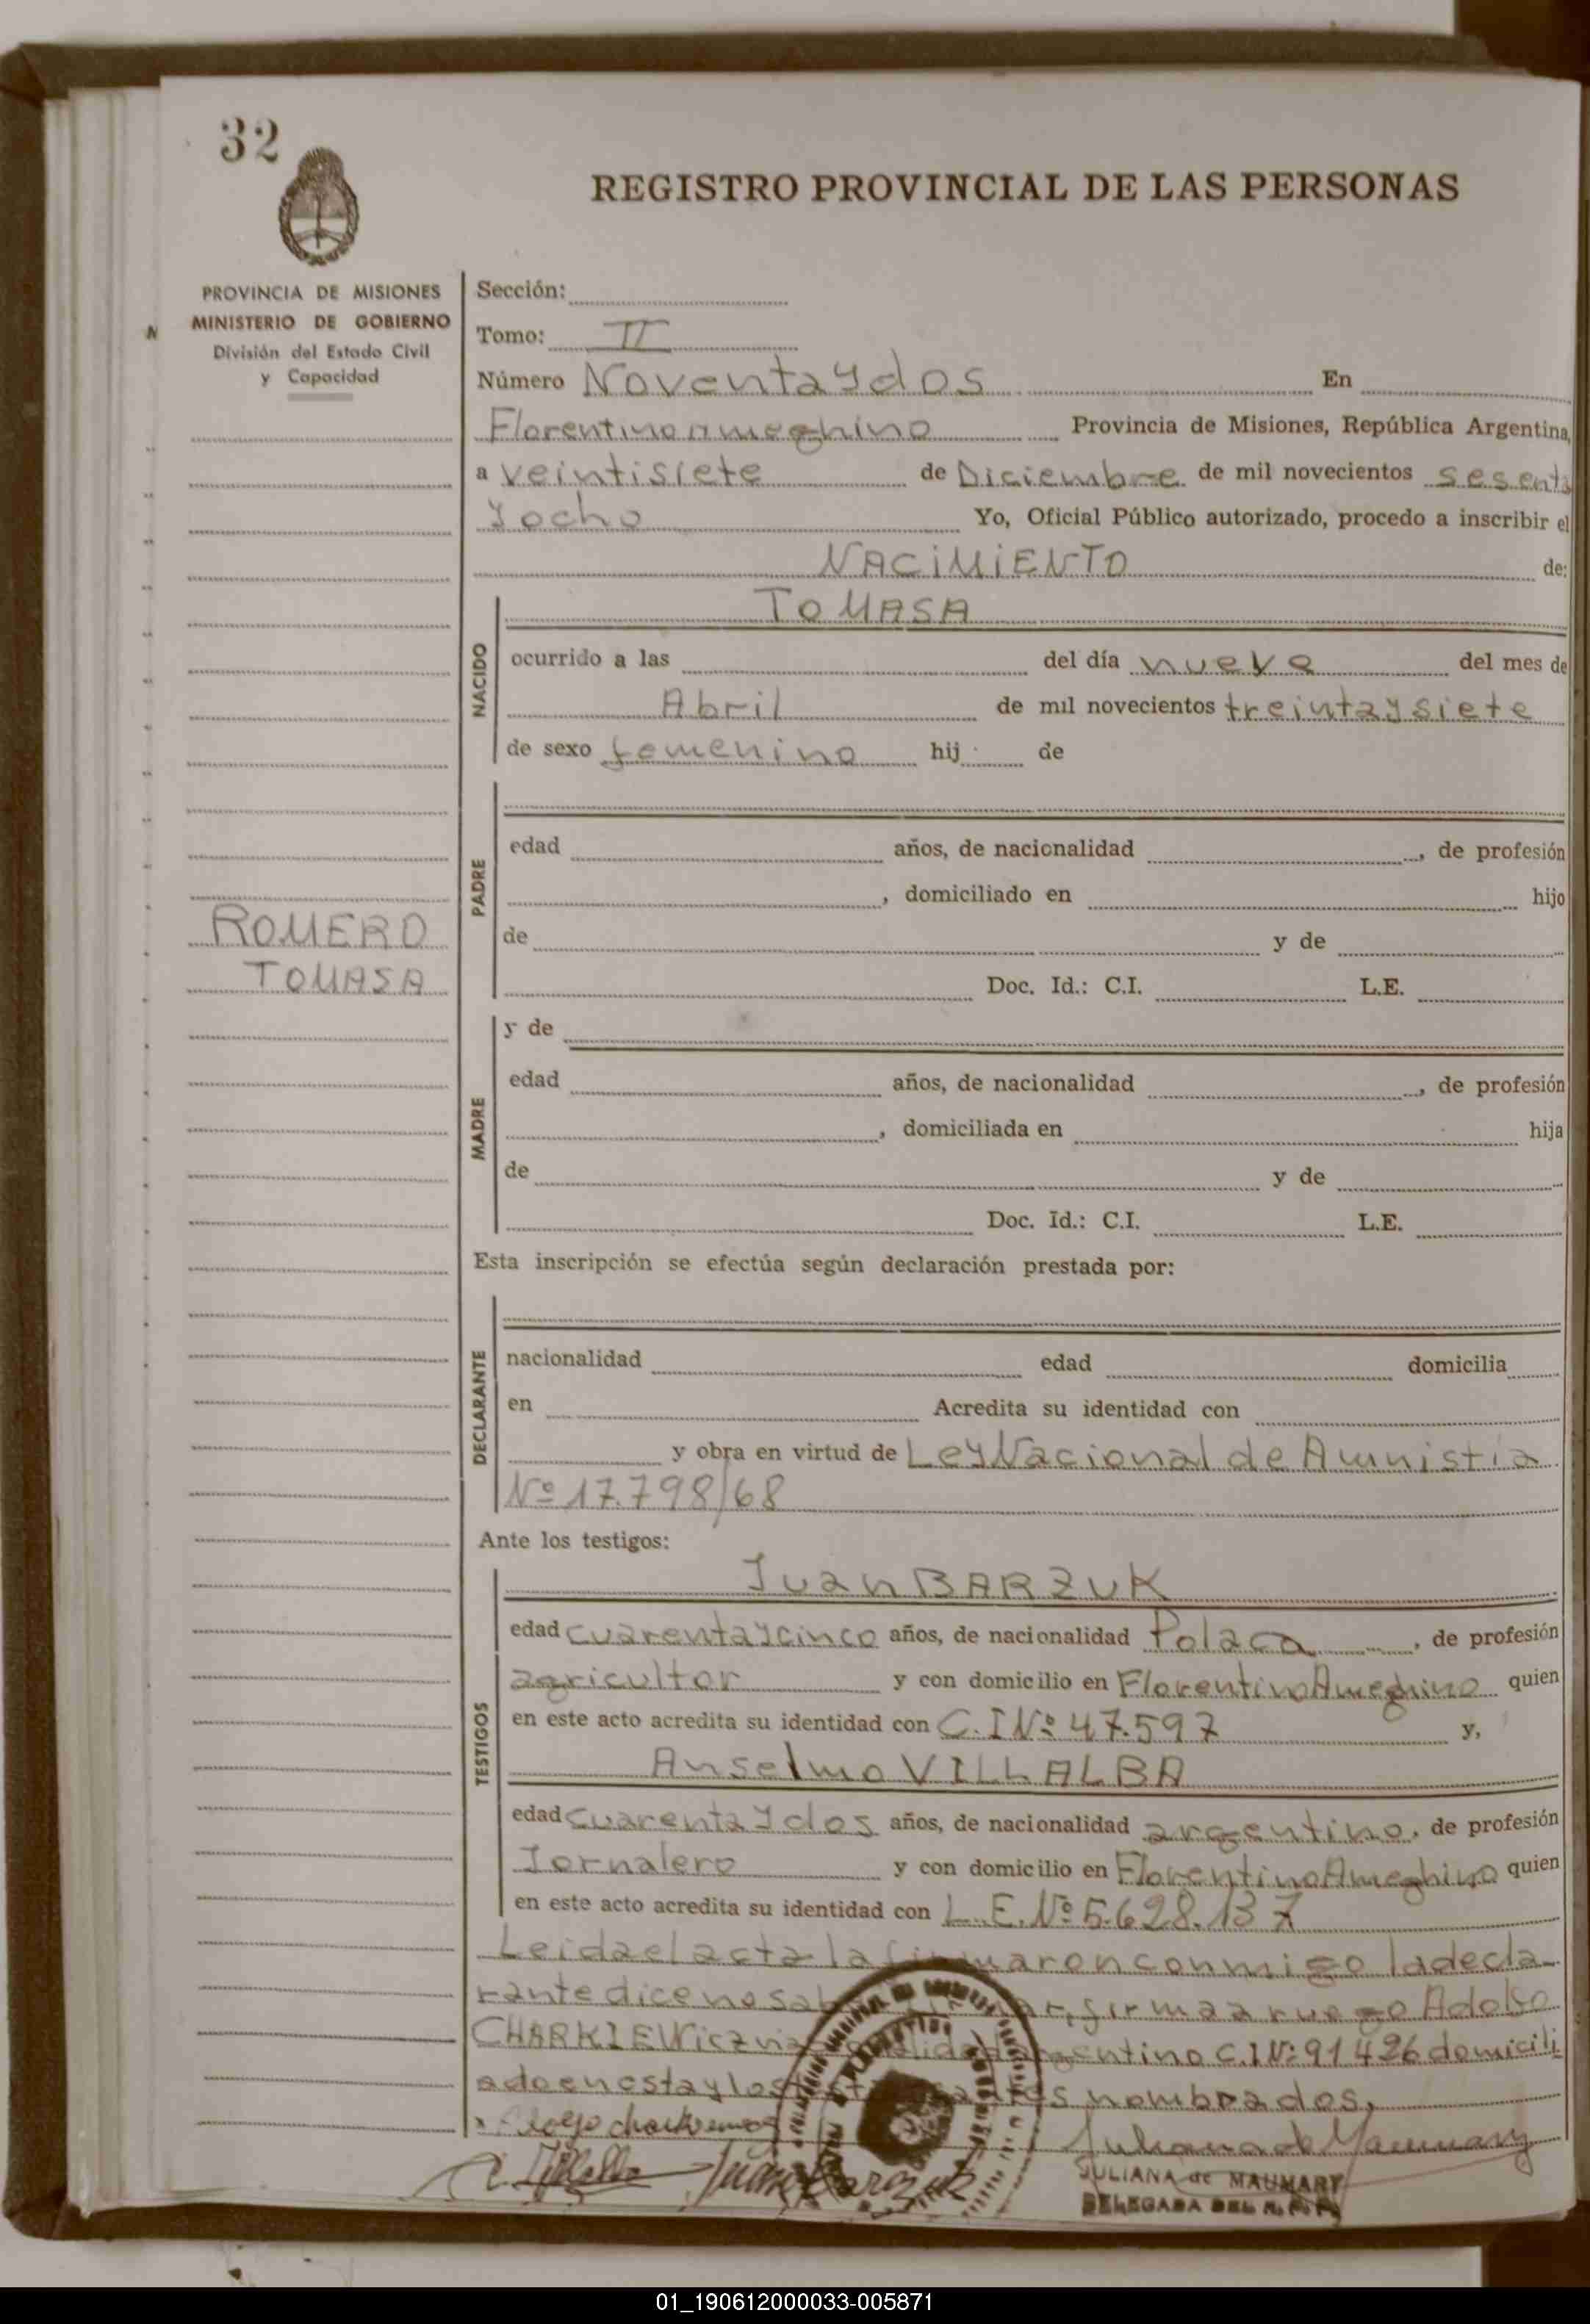 32
REGISTRO PROVINCIAL DE LAS PERSONAS
PROVINCIA DE MISIONES
MINISTERIO DE GOBIERNO
División del Estado Civil
y Capacidad
ROMERO
TOMASA
Sección:
Tomo: II
Número Noventaydos En
Florentino Ameghino Provincia de Misiones, República Argentina,
a veintisiete de Diciembre de mil novecientos sesenta
y ocho Yo, Oficial Público autorizado, procedo a inscribir el
NACIMIENTO de:
NACIDO
TOMASA
ocurrido a las del día nueve del mes de
Abril de mil novecientos treintaysiete
de sexo femenino hij de
PADRE
edad años, de nacionalidad , de profesión
, domiciliado en hijo
de y de
Doc. Id.: C.I. L.E.
MADRE
y de
edad años, de nacionalidad , de profesión
, domiciliada en hija
de y de
Doc. Id.: C.I. L.E.
Esta inscripción se efectúa según declaración prestada por:
DECLARANTE
nacionalidad edad domicilia
en Acredita su identidad con
y obra en virtud de Ley Nacional de Amnistia
Nº 17.798/68
Ante los testigos:
TESTIGOS
Juan BARZUK
edad cuarentaycinco años, de nacionalidad Polaca, de profesión
agricultor y con domicilio en Florentino Ameghino quien
en este acto acredita su identidad con C.I Nº 47.597 y,
Anselmo VILLALBA
edad cuarentaydos años, de nacionalidad argentino, de profesión
Jornalero y con domicilio en Florentino Ameghino quien
en este acto acredita su identidad con L.E. Nº 5.628.137
Leida el acta la firmaron conmigo la decla
rante dice no saber firmar, firma a ruego Adolfo
CHARKIEWicz nacionalidad argentino C.I Nº 91426 domicili
ado en esta y los testigos antes nombrados,
Juan Barzuk
Juliana de Maumary
JULIANA de MAUMARY
DELEGADA DEL R. P. P.
01_190612000033-005871